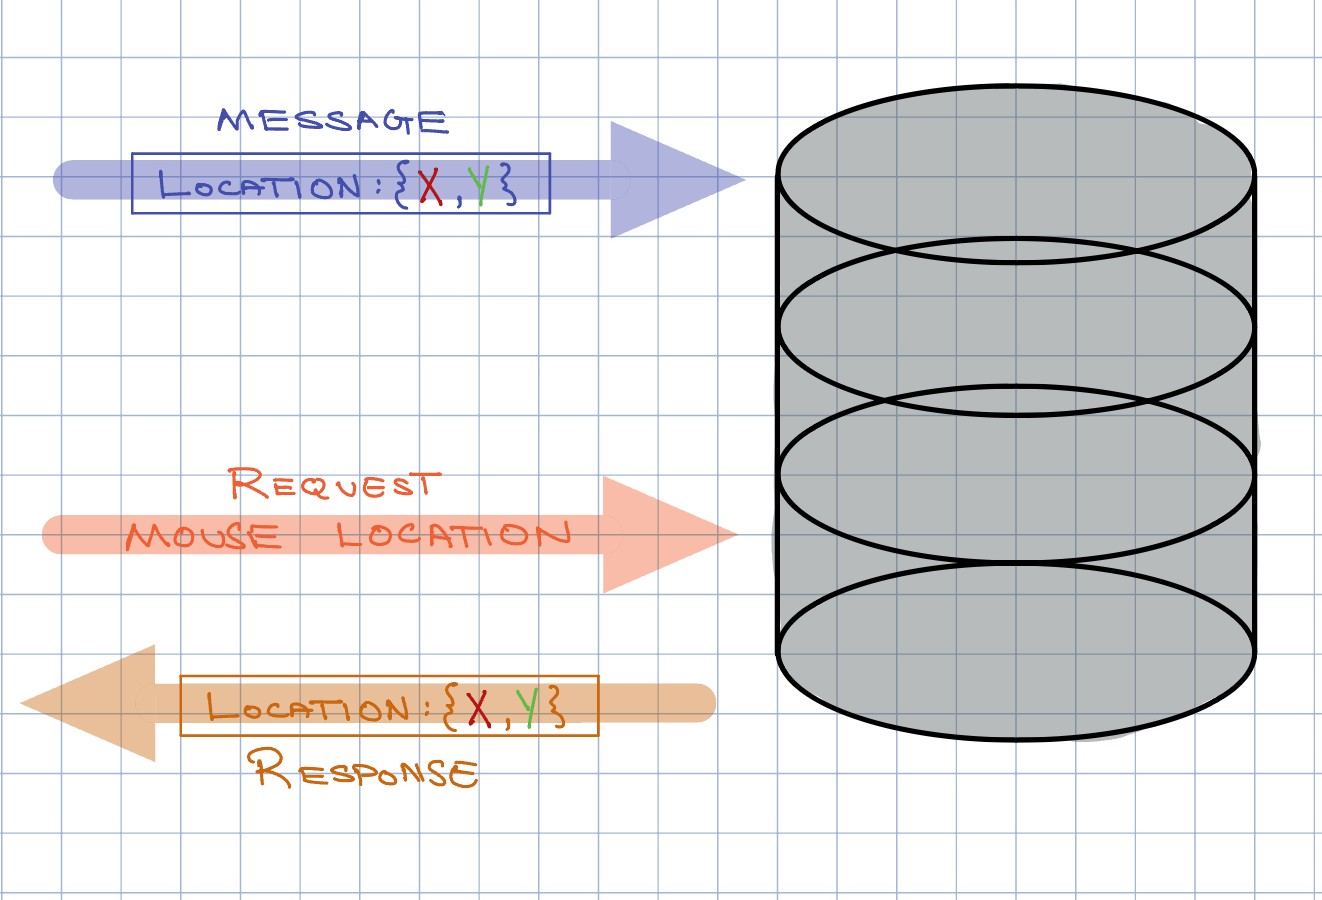 MESSAGE
LOCATION: {X, Y}
REQUEST
MOUSE LOCATION
LOCATION: {X, Y}
RESPONSE